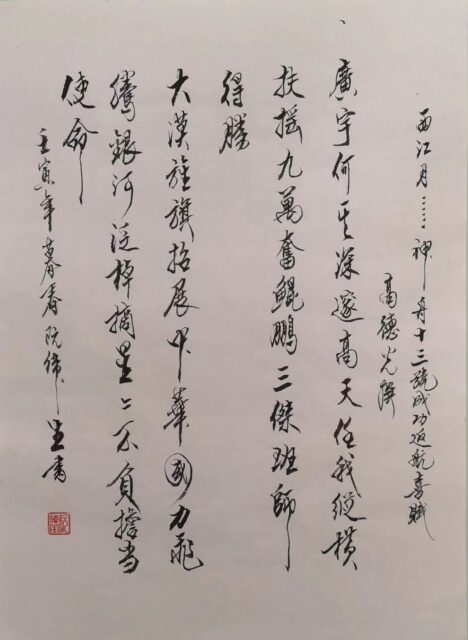 西江月……神舟十三號成功返航喜賦
高德光撰
廣宇何其深邃高天任我縱橫
扶摇九萬奮鯤鵬三傑班師
得勝
大漠旌旗招展中華國力飛
騰銀河泛棹摘星々不負擔当
使命
壬寅年暮春阮偉生書